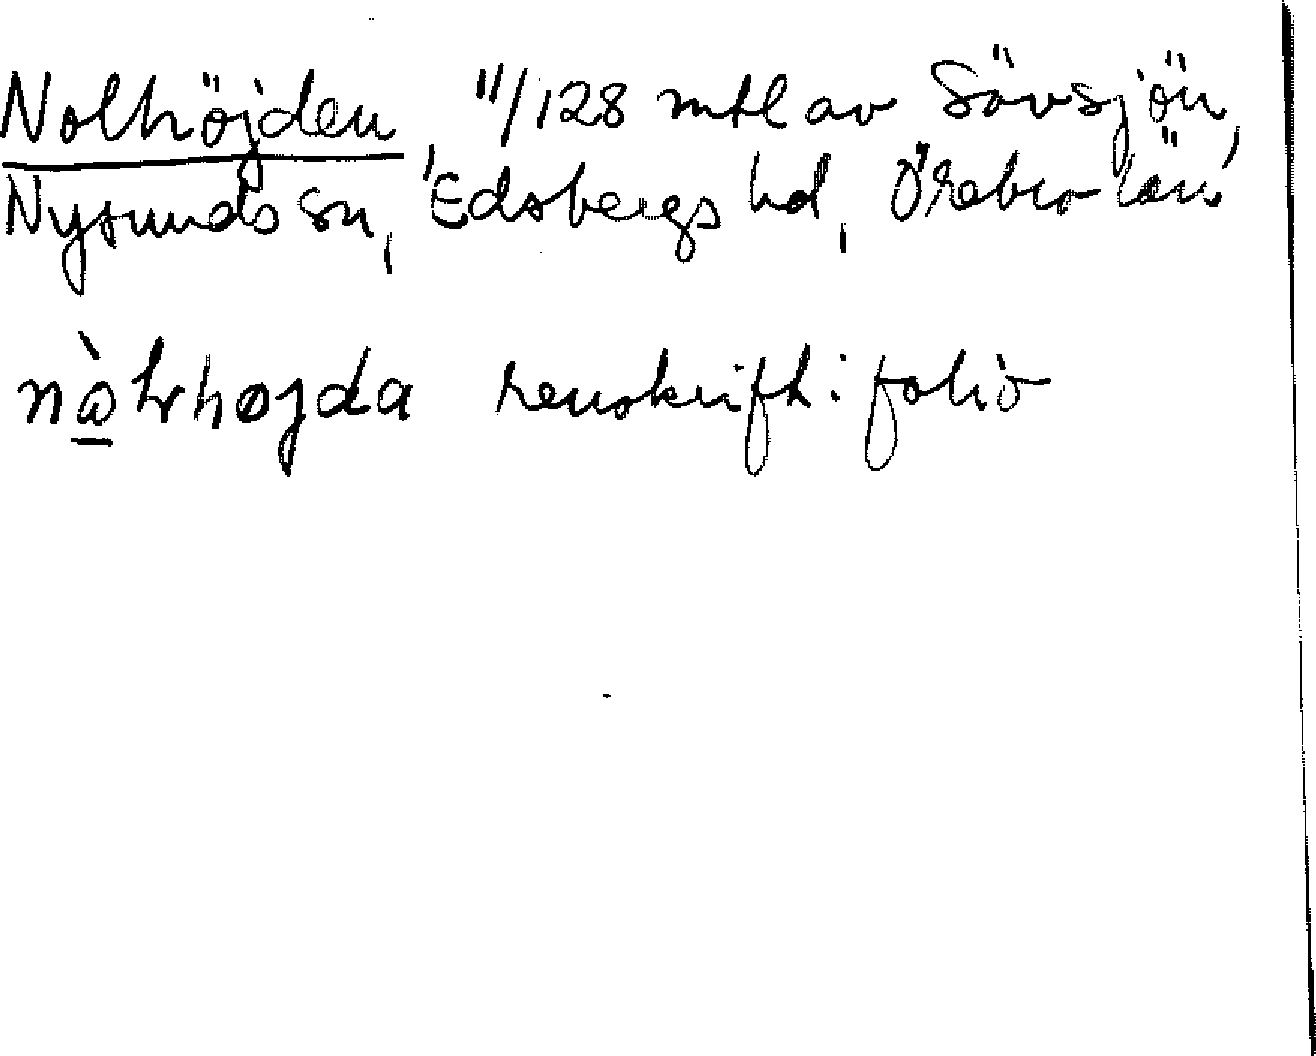 Nolhöjden 11/128 mtl av Sövsjön,
Nysunds sn, Edsbergs hd, Örebro län
nàlrhøjda renskrift i folio